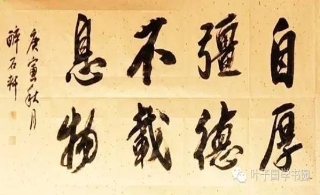 自彊不息
厚德載物
庚寅秋月
醉石軒
叶子国学书园